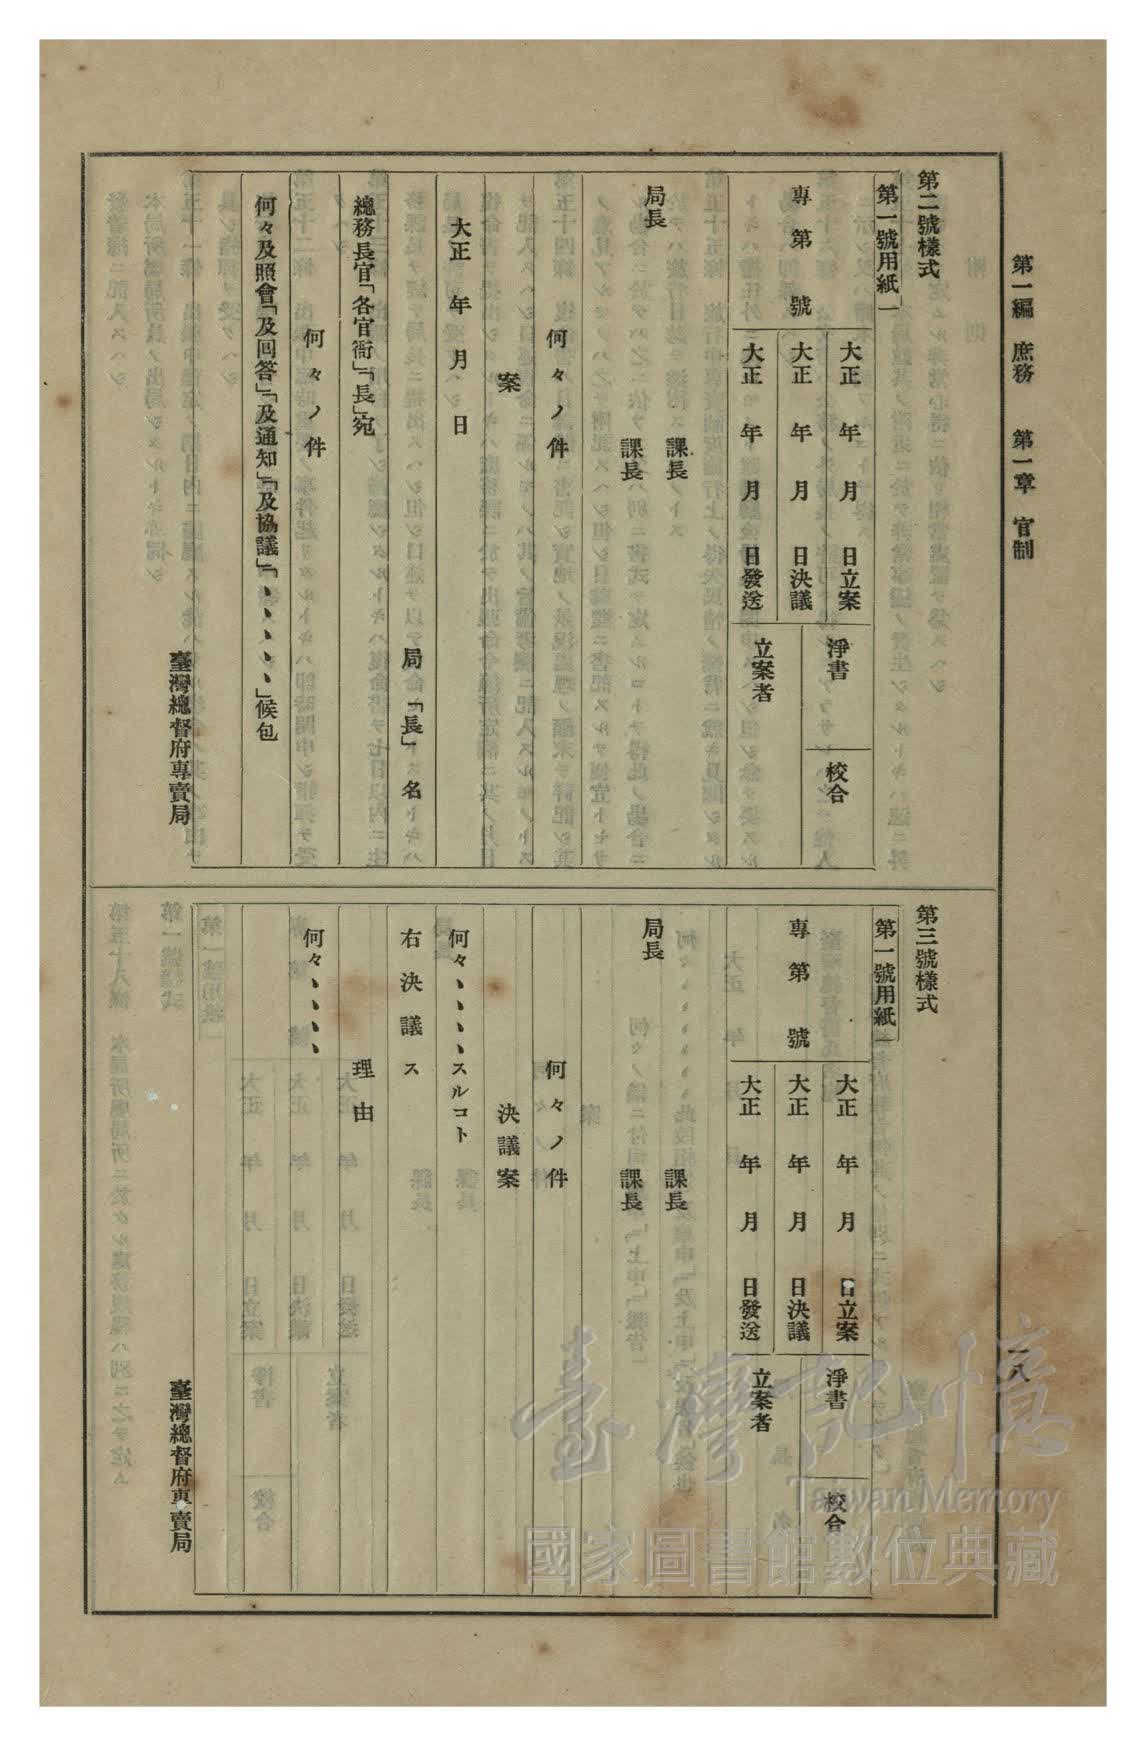 第一編 庶務 第一章 官制
一八
第二號樣式
第一號用紙
專第 號
大正 年 月 日立案
大正 年 月 日決議
大正 年 月 日發送
淨書
校合
立案者
局長
課長
課長
何々ノ件
案
大正 年 月 日
局「長」 名
總務長官「各官衙」「長」宛
何々ノ件
何々及照會「及回答」「及通知」「及協議」「、、、、、」候包
臺灣總督府專賣局
第三號樣式
第一號用紙
專第 號
大正 年 月 日立案
大正 年 月 日決議
大正 年 月 日發送
淨書
校合
立案者
局長
課長
課長
何々ノ件
決議案
何々、、、、スルコト
右決議ス
理由
何々、、、、
臺灣總督府專賣局
臺灣記憶
Taiwan Memory
國家圖書館數位典藏